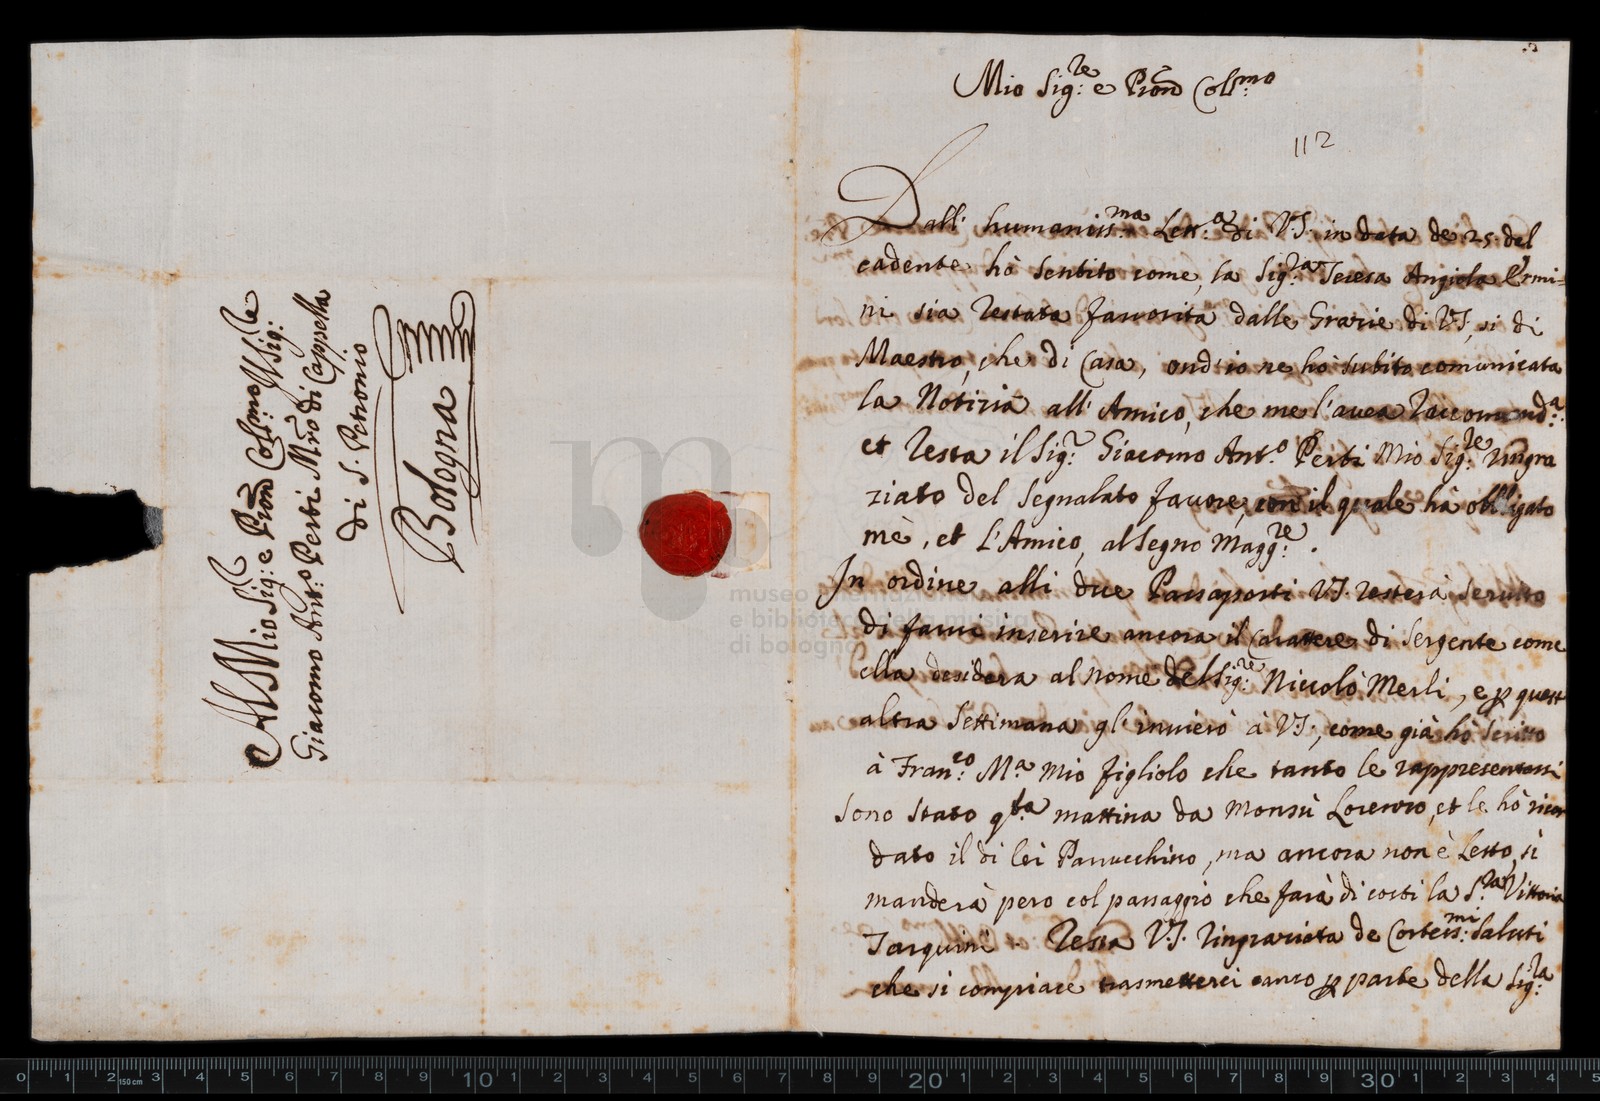 Al Mio Sig:re e Pron Col:mo Il Sig:
Giacomo Ant:o Perti Mro di Cappella
di S. Petronio
Bologna
Mio Sig:re e Pron Coll:mo
112
Dall' humaniss:ma Lett:a di V.S. in data de 25. del
cadente hò sentito come, la Sig:ra Teresa Angiola Ermi=
ni sia restata favorita dalle Grazie di V.S, si di
Maestro, che di Casa, ond'io ne hò subito comunicata
la Notizia all' Amico, che me l'avea raccomand:a
et resta il Sig:r Giacomo Ant:o Perti Mio Sig:re ringra
ziato del segnalato favore, con il quale hà obbligato
mè, et L'Amico, al segno Magg:re.
In ordine alli due Passaporti V.S. resterà servito
di farvi inserire ancora il Carattere di Sergente come
ella desidera al nome del Sig:re Niccolò Merli, e p quest
altra settimana gl'invierò à V.S., come già hò scritto
à Fran:co M:a mio figliolo che tanto le rappresentassi
sono stato q:ta mattina da Monsù Lorenzo, et le hò ricor
dato il di lei Parucchino, ma ancora non è Lesto, si
manderà pero col passaggio che farà di costi la S:ra Vittoria
Tarquini. Resta V.S. ringraziata de Corteis:mi saluti
che si compiace trasmetterci anco p parte della Sig:ra
museo internazionale
e biblioteca della musica
di bologna